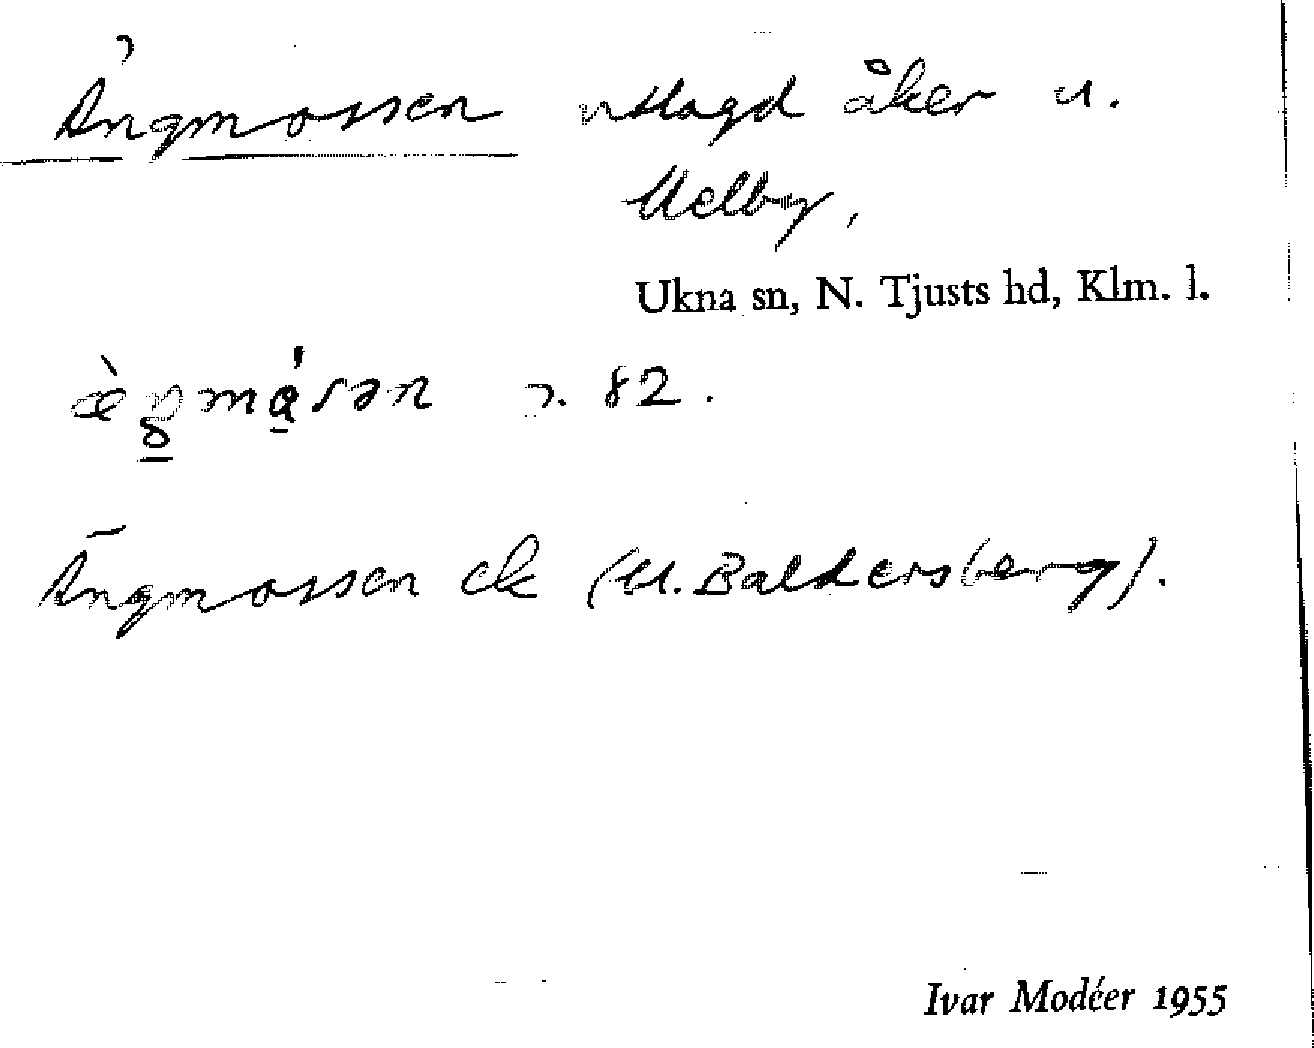 Ängmossen utlagd åker u.
Melby,
Ukna sn, N. Tjusts hd, Klm. l.
82.
Ängmossen ek (U. Baldersberg).
Ivar Modéer 1955